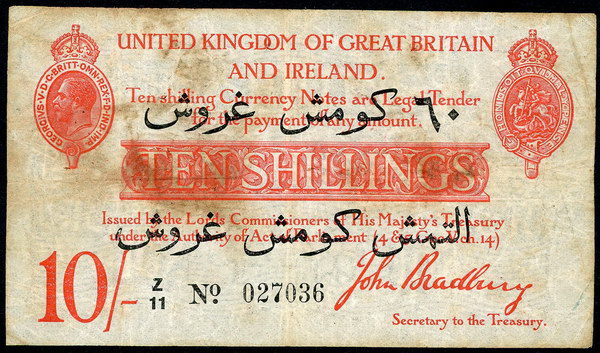 UNITED KINGDOM OF GREAT BRITAIN
AND IRELAND.
Ten shilling Currency Notes are Legal Tender
٦٠ كومش غروش
for the payment of any amount.
TEN SHILLINGS
Issued by the Lords Commissioners of His Majesty's Treasury
under the Authority of Act of Parliament (4 & 5 Geo. V Ch. 14)
التمش كومش غروش
10/-
Z
11
No 027036
John Bradbury
Secretary to the Treasury.
GEORGIVS·V·D·G·BRITT·OMN·REX·F·D·IND·IMP·
HONI·SOIT·QUI·MAL·Y·PENSE